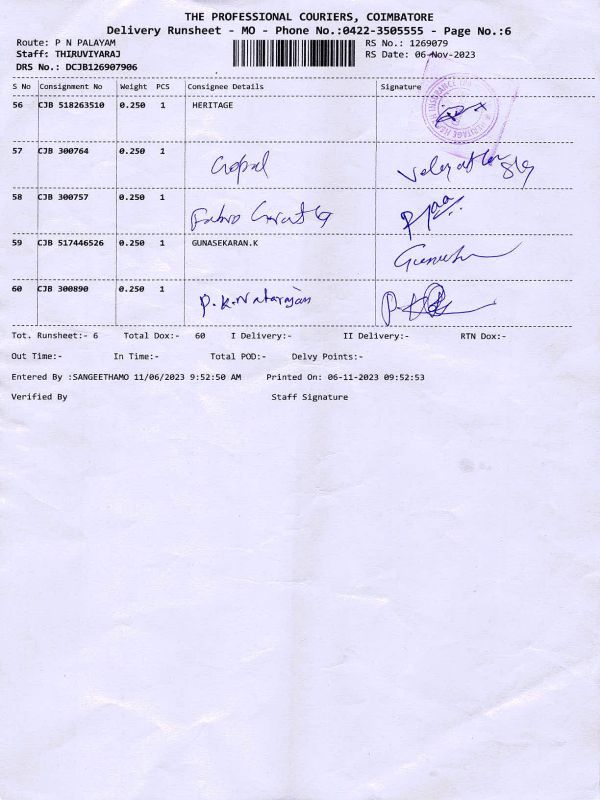 THE PROFESSIONAL COURIERS, COIMBATORE
Delivery Runsheet - MO - Phone No.:0422-3505555 - Page No.:6
Route: P N PALAYAM RS No.: 1269079
Staff: THIRUVIYARAJ RS Date: 06-Nov-2023
DRS No.: DCJB126907906
S No Consignment No Weight PCS Consignee Details Signature
56 CJB 518263510 0.250 1 HERITAGE
57 CJB 300764 0.250 1 Gopal
58 CJB 300757 0.250 1
59 CJB 517446526 0.250 1 GUNASEKARAN.K
60 CJB 300890 0.250 1 P.K.Natarajan
Tot. Runsheet:- 6 Total Dox:- 60 I Delivery:- II Delivery:- RTN Dox:-
Out Time:- In Time:- Total POD:- Delvy Points:-
Entered By :SANGEETHAMO 11/06/2023 9:52:50 AM Printed On: 06-11-2023 09:52:53
Verified By Staff Signature